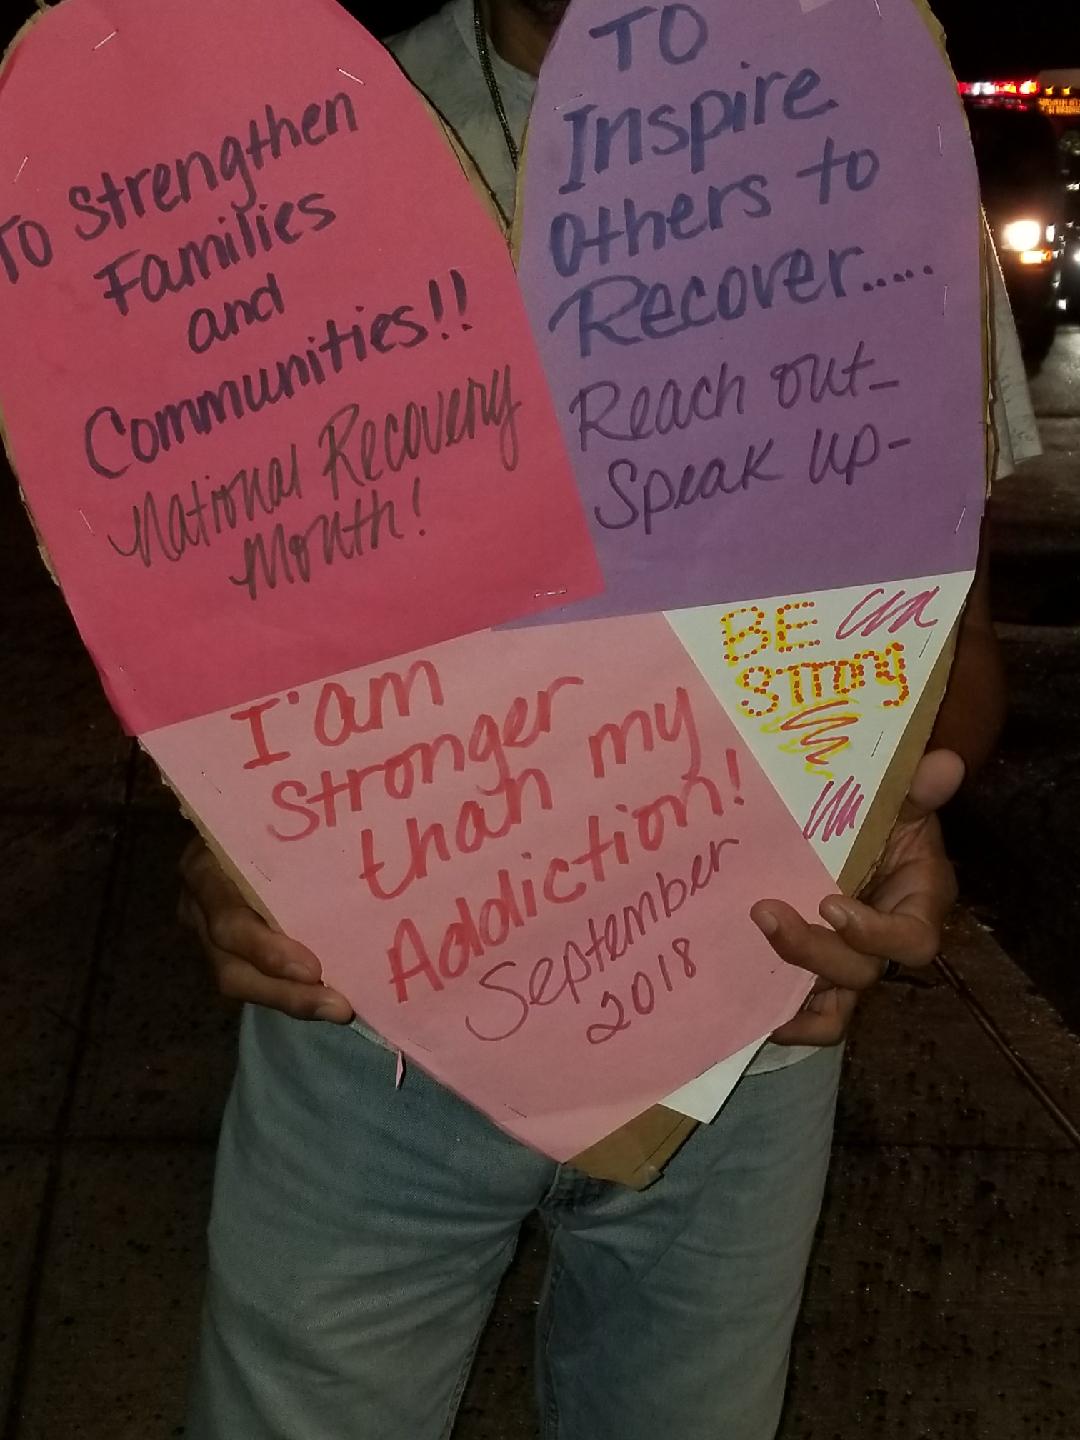 To Strengthen
Families
and
Communities!!
National Recovery
Month!
TO
Inspire
Others to
Recover.....
Reach out-
Speak up-
I'am
Stronger
than my
Addiction!
September
2018
BE
Strong